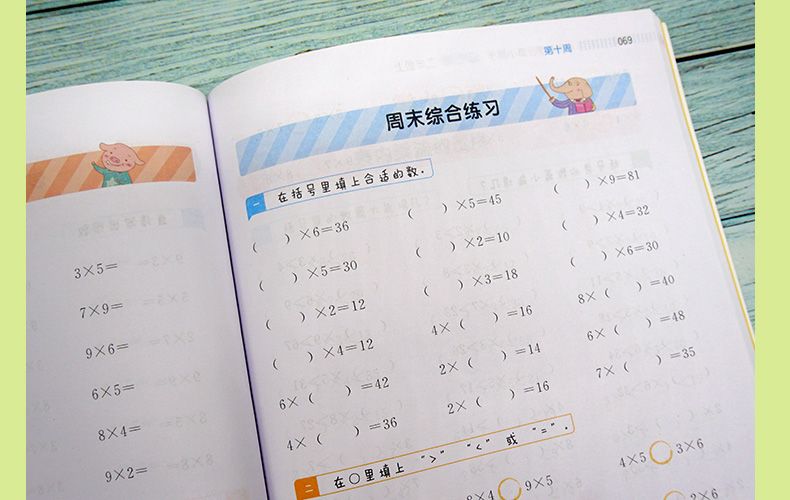 3×5=
7×9=
9×6=
6×5=
8×4=
9×2=
第十周 069
周末综合练习
一 在括号里填上合适的数.
( )×6=36 ( )×5=45 ( )×9=81
( )×5=30 ( )×2=10 ( )×4=32
( )×2=12 ( )×3=18 ( )×6=30
( )×4=12 4×( )=16 8×( )=40
6×( )=42 2×( )=14 6×( )=48
4×( )=36 2×( )=16 7×( )=35
二 在○里填上 ">" "<" 或 "=".
8×4○9×5 4×5○3×6
2×6